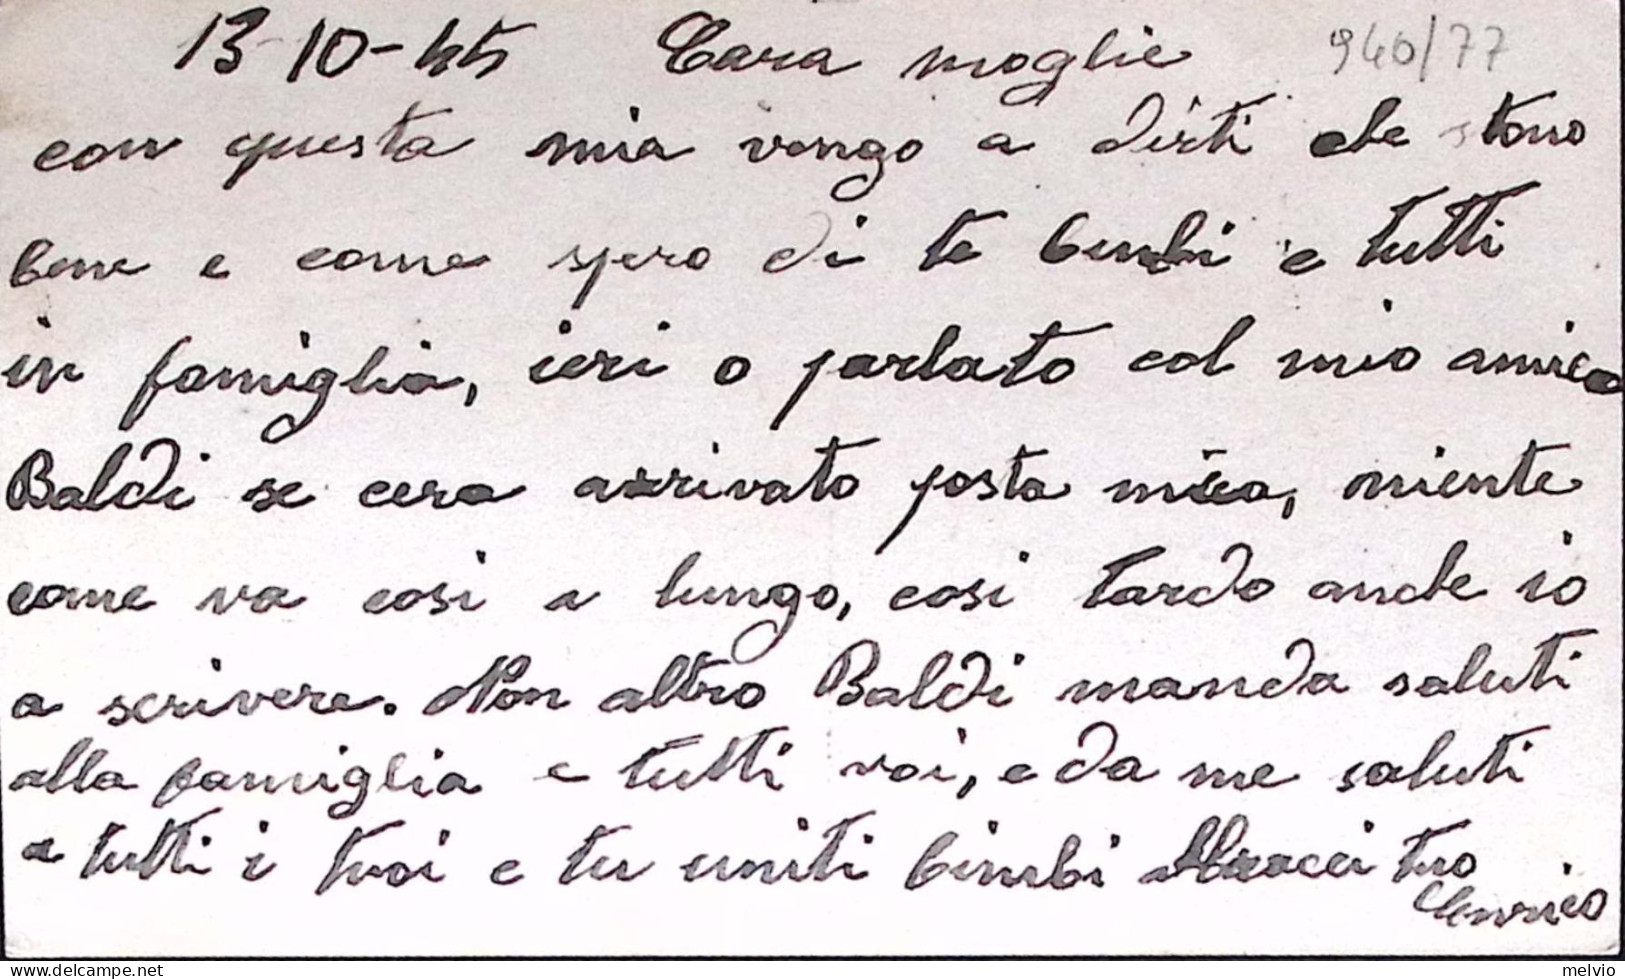 13-10-45 Cara moglie 940/77
con questa mia vengo a dirti che stono
bene e come spero di te bimbi e tutti
in famiglia, ieri o parlato col mio amico
Baldi se cera arrivato posta mica, niente
come va cosi a lungo, cosi tardo anche io
a scrivere. Non altro Baldi manda saluti
alla famiglia e tutti voi, e da me saluti
a tutti i tuoi e tu uniti bimbi Abracci tuo
Enrico
delcampe.net
melvio